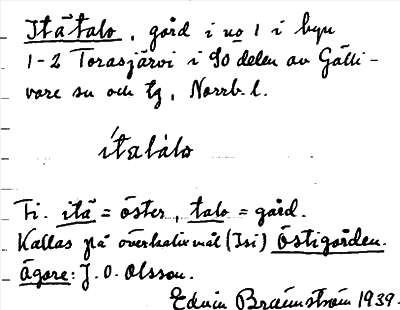 Itätalo, gård i no 1 i byn
1-2 Torasjärvi i SO delen av Gälli-
vare sn och tg, Norrb. l.
ítalálo
Fi. itä = öster, talo = gård.
Kallas på överkalixmål (Isi) Östigården.
Ägare: J. O. Olsson.
Edvin Brännström 1939.